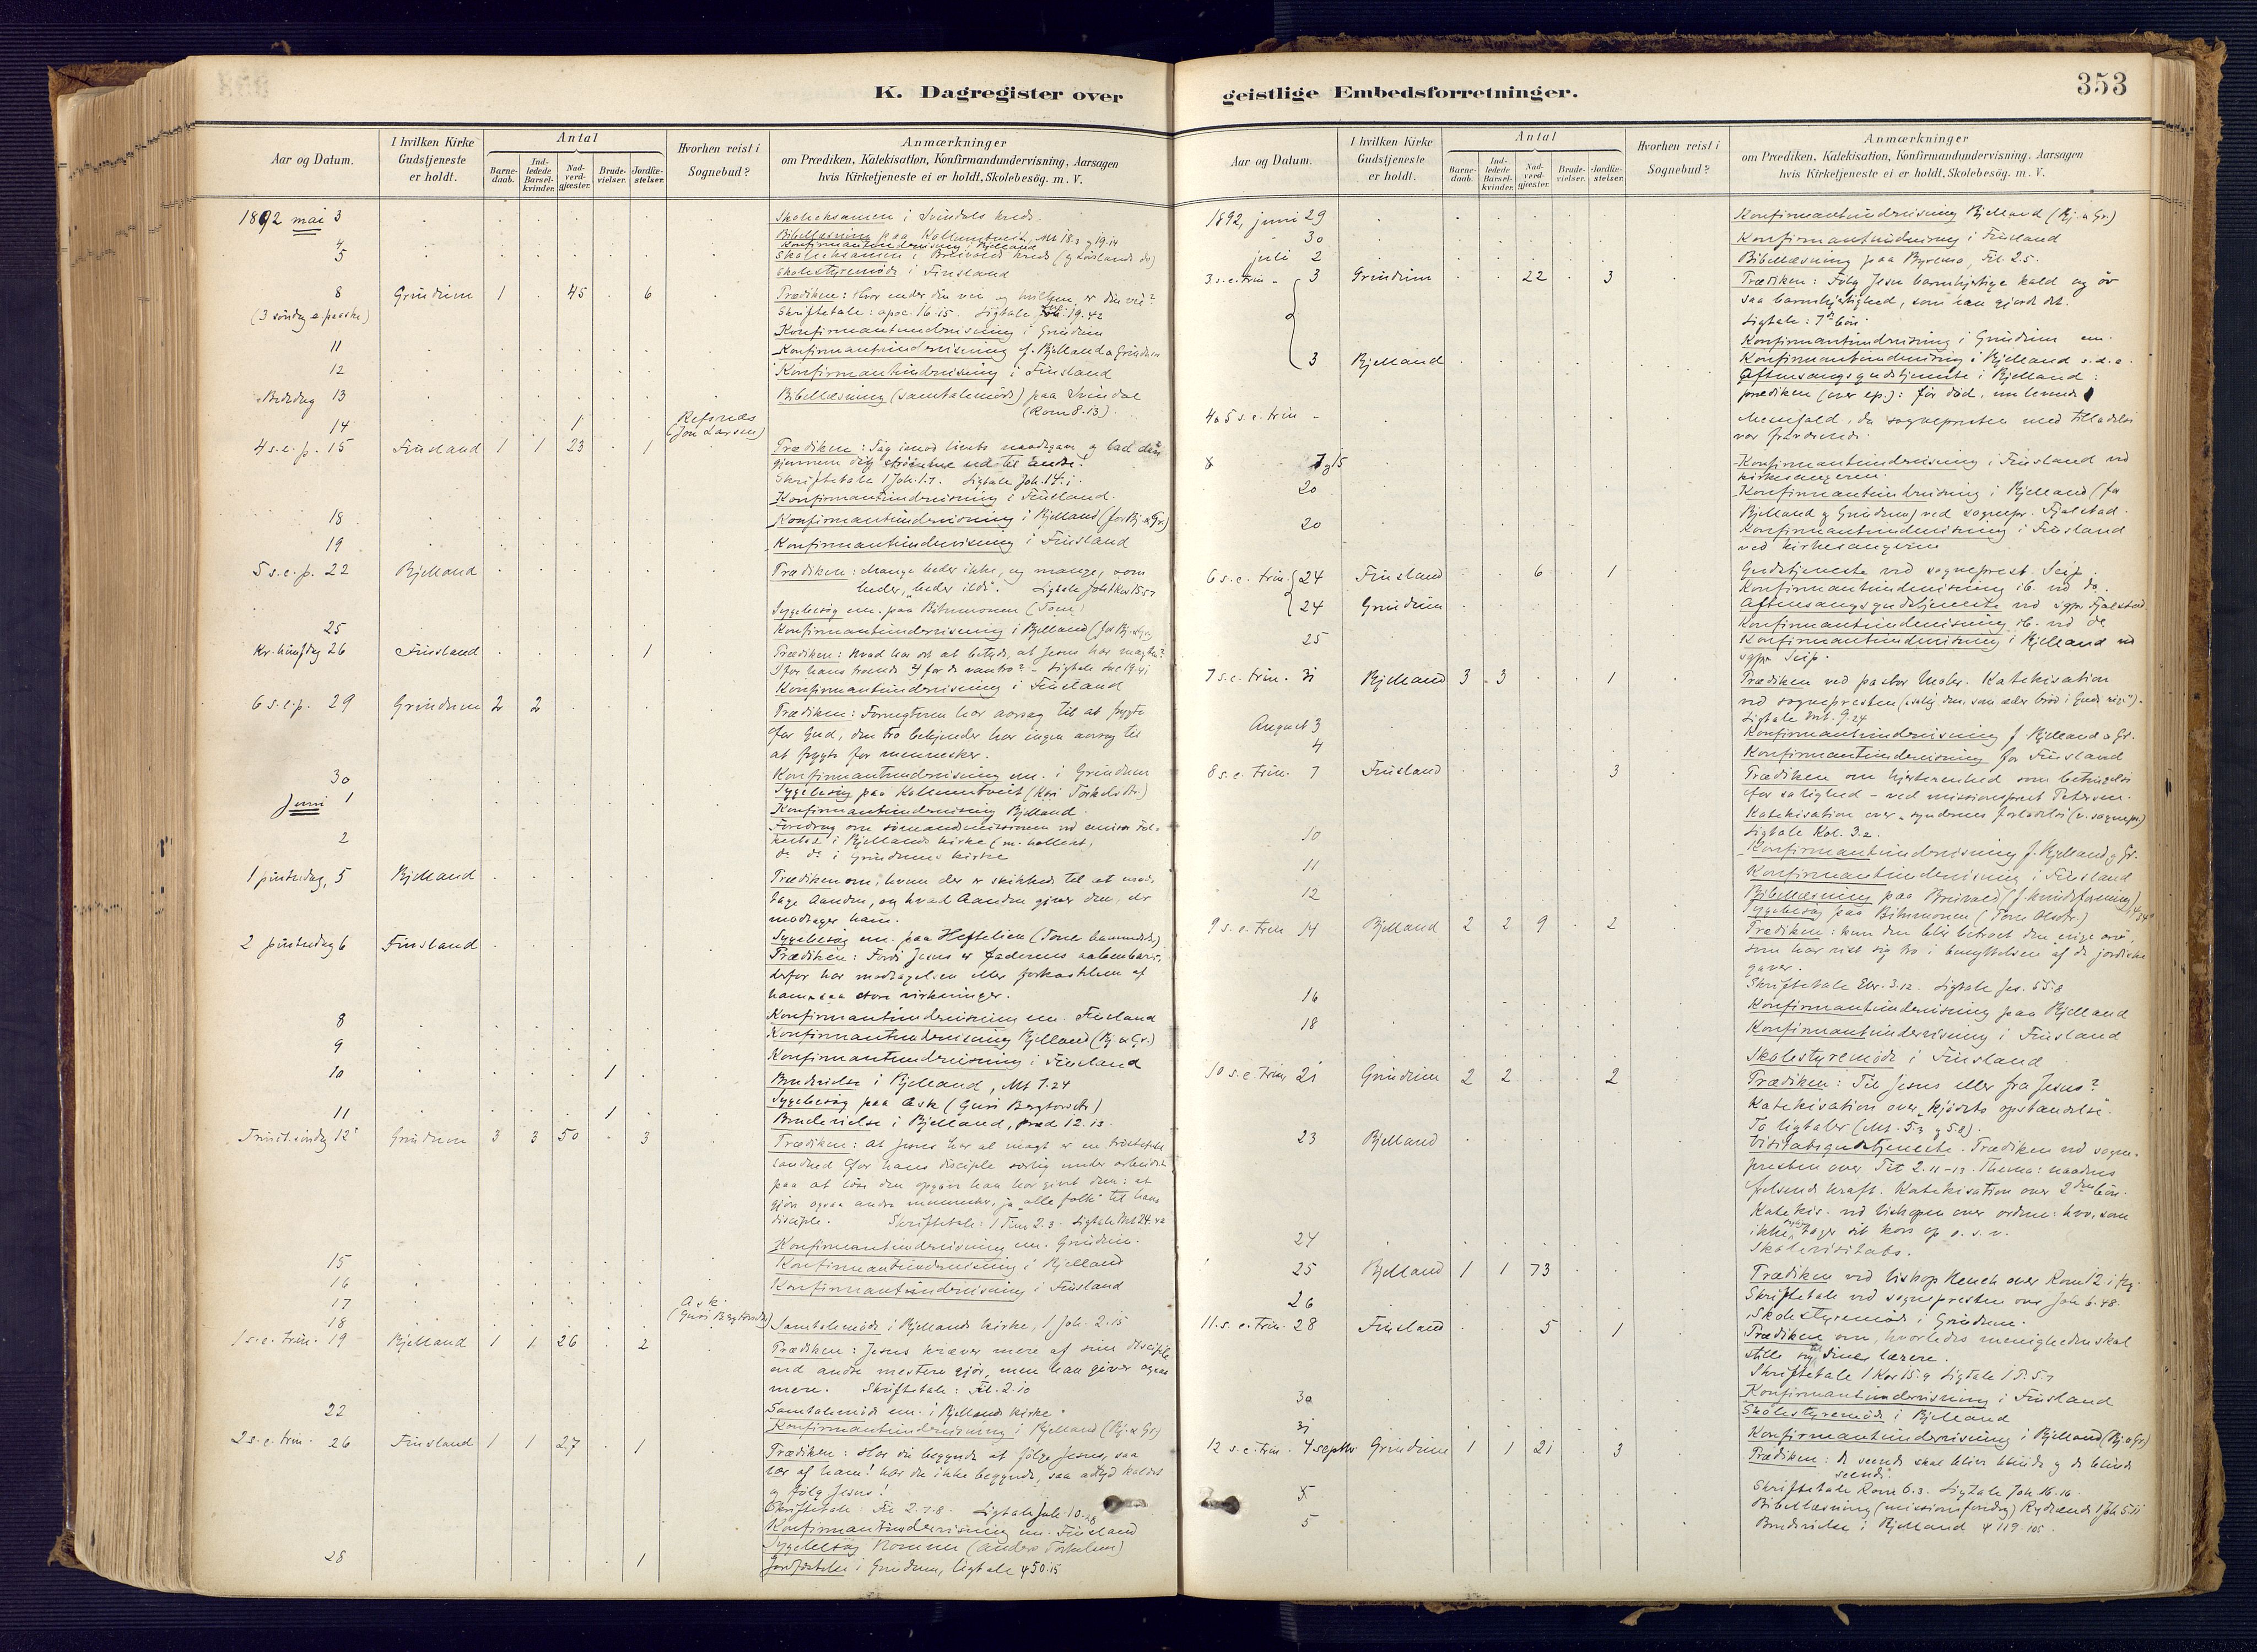 K. Dagregister over
Aar og Datum.
I hvilken Kirke Gudstjeneste er holdt.
Antal
Barne-daab.
Ind-ledede Barsel-kvinder.
Nad-verd-gjæster.
Brude-vielser.
Jordfæ-stelser.
Hvorhen reist i Sognebud?
Anmærkninger
om Prædiken, Katekisation, Konfirmandundervisning, Aarsagen
hvis Kirketjeneste ei er holdt, Skolebesög. m. V.
1892 mai 3 Skoleeksamen i Svindals kreds.
Bibellæsning paa Kollungtveit, Mt 18.3 og 19.14
4 Konfirmantundervisning Bjelland
5 Skoleeksamen i Breivolds kreds
Skolestyremøde i Finsland
8 Grindum 1 . 45 . 6 Prædiken: Hvor ender din vei og hvilken er din vei?
(3 søndag e paaske) Skriftetale: apoc. 16.15. Ligtale 19.42
Konfirmantundervisning i Grindum
11 Konfirmantundervisning f. Bjelland a Grindum
12 Konfirmantundervisning i Finsland
Bededag 13 Bibellæsning (samtalemøde) paa Svindal
(Rom 8.13).
14 1 Refsnæs
(Jon Larsen)
4 s.e.p. 15 Finsland 1 1 23 . 1 Prædiken: Tag imod livets og lad den
gjennem dig strømme ud til andre!
Skriftetale 1 Joh. 1.7. Ligtale Joh. 14.1.
Konfirmantundervisning i Finsland.
18 Konfirmantundervisning i Bjelland (for Bj. & Gr.)
19 Konfirmantundervisning i Finsland
5 s.e.p. 22 Bjelland Prædiken: Mange beder ikke, og mange, som
beder, "beder ilde". Ligtale
Sygebesøg em. paa Bihmonen (Tone)
25 Konfirmantundervisning i Bjelland
Kr. himfdag 26 Finsland 1 Prædiken: Hvad har det at betyde, at Jesus har magten?
for hans troende for de vantro? - Ligtale Luc 19.41
Konfirmantundervisning i Finsland
6 s.e.p. 29 Grindum 2 2 Prædiken: Fornegteren har aarsag til at frygte
for Gud, den tro bekjender har ingen aarsag til
at frygte for mennesker.
Konfirmantundervisning em. i Grindum
30 Sygebesøg paa Kollumtveit (Kari Torkelsdtr.)
Juni 1 Konfirmantundervisning Bjelland.
Foredrag om sømandsmissionen ved
2 i Bjellands kirke (m. kollekt)
do do i Grindums kirke
1 pintsedag, 5 Bjelland Prædiken om, hvem der er skikkede til at mod-
tage Aanden, og hvad Aanden giver den, der
modtager ham.
Sygebesøg em. paa Heftelien
2 pintsedag 6 Finsland Prædiken: Fordi Jesus er Faderens aabenbarer,
derfor har modtagelsen eller forkastelsen af
ham saa store virkninger.
Konfirmantundervisning em. Finsland
8 Konfirmantundervisning Bjelland (Bj. & Gr.)
9 Konfirmantundervisning i Finsland
10 1 Brudevielse i Bjelland, Mt 7.24
Sygebesøg paa Ask (Guri Bergtorsdtr)
11 1 Brudevielse i Bjelland, Præd 12.13
Trinit. søndag 12 Grindum 3 3 50 . 3 Prædiken: At Jesus har al magt er en trøstefuld
sandhed for hans disciple særlig under arbeidet
paa at løse den opgave han har givet dem: at
gjøre ogsaa andre mennesker, ja "alle folk" til hans
disciple. Skriftetale: 1 Tim 2.3. Ligtale Mt 24.42
Konfirmantundervisning em. Grindum.
15 Konfirmantundervisning i Bjelland
16 Konfirmantundervisning i Finsland
17 Ask
(Guri Bergtorsdtr)
18 Samtalemøde i Bjellands kirke, 1 Joh. 2.15
1 s.e. trin. 19 Bjelland 1 1 26 . 2 Prædiken: Jesus kræver mere af sine disciple
end andre mestere gjør, men han giver ogsaa
mere. Skriftetale: Fil. 2.10
Samtalemøde em. i Bjellands kirke
22 Konfirmantundervisning i Bjelland (Bj. & Gr)
2 s.e. trin. 26 Finsland 1 1 27 . 1 Prædiken: Har du begyndt at følge Jesus, saa
lær af ham! har du ikke begyndt, saa kaldet
og følg Jesus!
Skriftetale: Fil 2.7.8. Ligtale Joh 10.28
Konfirmantundervisning em. Finsland
Sygebesøg (Anders Torkelsen)
28 1 Jordfæstelse i Grindum, ligtale 50.15
geistlige Embedsforretninger.
353
Aar og Datum.
I hvilken Kirke Gudstjeneste er holdt.
Antal
Barne-daab.
Ind-ledede Barsel-kvinder.
Nad-verd-gjæster.
Brude-vielser.
Jordfæ-stelser.
Hvorhen reist i Sognebud?
Anmærkninger
om Prædiken, Katekisation, Konfirmandundervisning. Aarsagen
hvis Kirketjeneste ei er holdt. Skolebesög. m. V.
1892, juni 29 Konfirmantundervisning Bjelland (Bj. a Gr.)
30 Konfirmantundervisning i Finsland
juli 2 Bibellæsning paa Byremo, Fil. 2.5.
3 s.e. trin - 3 Grindum 22 . 3 Prædiken: Følg Jesu barmhjertige kald og øv
saa barmhjertighed, som han gjorde det.
Ligtale: 7de bøn
Konfirmantundervisning i Grindum em.
3 Bjelland Konfirmantundervisning i Bjelland s.d.
Aftensangsgudstjeneste i Bjelland:
prædiken (over ep.): før død, nu levende
4 a 5 s.e. trin - Messefald, da sognepresten med tilladelse
var fraværende.
7 og 15 Konfirmantundervisning i Finsland ved
kirkesangeren.
20 Konfirmantundervisning i Bjelland (for
Bjelland og Grindum) ved sognepr. Fjalestad.
20 Konfirmantundervisning i Finsland
ved kirkesangeren
6 s.e. trin. 24 Finsland 6 . 1 Gudstjeneste ved sogneprest Seip.
Konfirmantundervisning ib. ved do.
24 Grindum Aftensangsgudstjeneste ved sgpr. Fjalestad.
Konfirmantundervisning ib. ved do
25 Konfirmantundervisning i Bjelland ved
sgpr. Seip.
7 s.e. trin. 31 Bjelland 3 3 . . 1 Prædiken ved pastor. Katekisation
ved sognepresten
Ligtale Mt. 9.24
August 3 Konfirmantundervisning f. Bjelland a Gr.
4 Konfirmantundervisning for Finsland
8 s.e. trin. 7 Finsland 3 Prædiken om hjerterenhed som betingelse
for salighed - ved missionsprest Petersen.
Katekisation over "syndernes forladelse" (v. sognepr)
Ligtale Kol. 3.2.
10 Konfirmantundervisning f. Bjelland og Gr.
11 Konfirmantundervisning i Finsland
12 Bibellæsning paa Breivold (f. kvindeforening)
Sygebesøg paa Bihmonen (Tone Olsdtr.)
9 s.e. trin 14 Bjelland 2 2 9 . 2 Prædiken: kun den blir betroet den evige arv,
som har vist sig tro i benyttelsen af de jordiske
gaver.
Skriftetale Ebr. 3.12. Ligtale Jes. 55.8
16 Konfirmantundervisning paa Bjelland
18 Konfirmantundervisning i Finsland
Skolestyremøde i Finsland
10 s.e. trin 21 Grindum 2 2 . . 2 Prædiken: Til Jesus eller fra Jesus?
Katekisation over "kjødets opstandelse".
To ligtaler (Mt. 5.3 og 5.8).
23 Bjelland Visitatsgudstjeneste. Prædiken ved sogne-
presten over Tit 2.11-13. Thema: naadens
frelsende kraft. Katekisation over 2den bøn.
Katekis. ved biskopen over ordene: hvo, som
ikke tager sit kors op o.s.v.
24 Skolevisitats.
25 Bjelland 1 1 73 Prædiken ved biskop Heuch over Rom 12.1 flg.
Skriftetale ved sognepresten over Joh 6.48.
26 Skolestyremøde i Grindum.
11. s.e. trin. 28 Finsland 5 . 1 Prædiken om, hvorledes menigheden skal
stille sig til sine lærere.
Skriftetale 1 Kor 15.9 Ligtale 1 P. 5.7
30 Konfirmantundervisning i Finsland
Skolestyremøde i Bjelland
31 Konfirmantundervisning i Bjelland (Bj. a Gr)
12 s.e. trin. 4 septbr Grindum 1 1 21 . 3 Prædiken: de seende skal blive blinde og de blinde
seende.
Skriftetale Rom 6.3. Ligtale Joh. 16.16.
5 Bibellæsning (missionsforedrag) 1 Joh 5.11
5 Brudevielse i Bjelland 119.105.